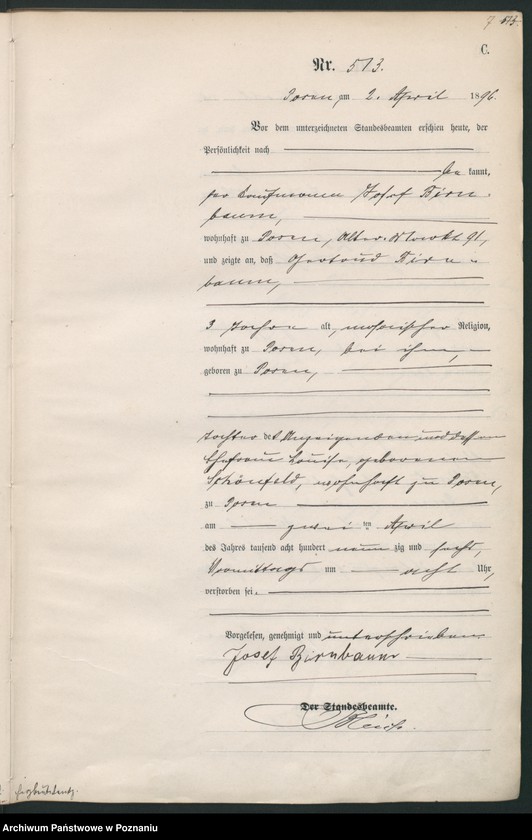 C.
Nr. 513.
Posen, am 2. April 1896.
Vor dem unterzeichneten Standesbeamten erschien heute, der
Persönlichkeit nach
be kannt,
der Kaufmann Josef Birn-
baum,
wohnhaft zu Posen, Alter Markt 91,
und zeigte an, daß Gertrud Birn-
baum,
3 Jahre alt, mosaischer Religion,
wohnhaft zu Posen, bei ihm,
geboren zu Posen,
Tochter des Anzeigenden und dessen
Ehefrau Louise, geborenen
Schönfeld, wohnhaft zu Posen,
zu Posen
am zwei ten April
des Jahres tausend acht hundert neun zig und sechs,
Vormittags um acht Uhr,
verstorben sei.
Vorgelesen, genehmigt und unterschrieben
Josef Birnbaum
Der Standesbeamte.
Archiwum Państwowe w Poznaniu